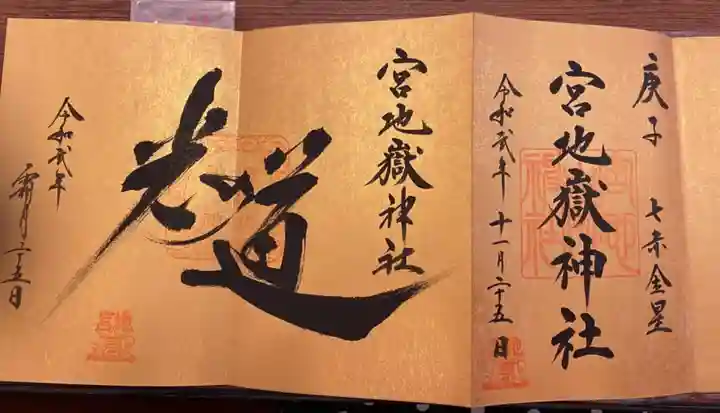 庚子
七赤金星
宮地嶽神社
令和弐年十一月二十五日
宮地嶽神社
光の道
令和弐年
霜月二十五日